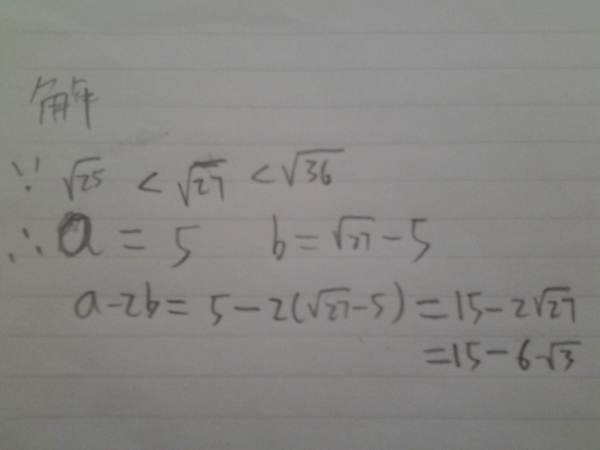 解
∵ √25 < √27 < √36
∴ a = 5 b = √27 - 5
a - 2b = 5 - 2(√27 - 5) = 15 - 2√27
= 15 - 6√3